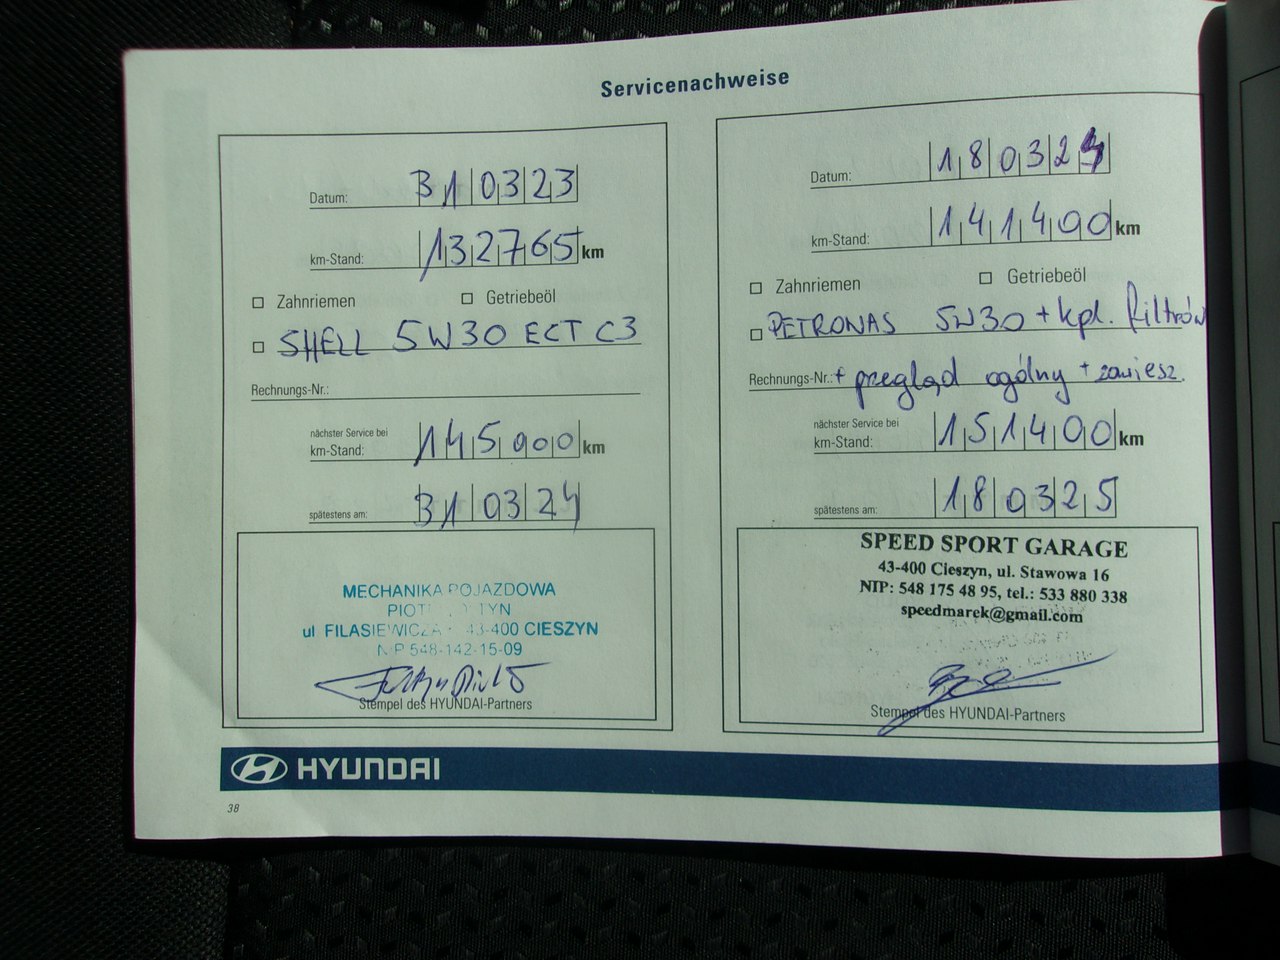 Servicenachweise
Datum: 31 03 23
km-Stand: 132765 km
Zahnriemen Getriebeöl
SHELL 5W30 ECT C3
Rechnungs-Nr.:
nächster Service bei
km-Stand: 145000 km
spätestens am: 31 03 24
MECHANIKA POJAZDOWA
ul FILASIEWICZA 43-400 CIESZYN
NIP 548-142-15-09
Stempel des HYUNDAI-Partners
Datum: 18 03 24
km-Stand: 141400 km
Zahnriemen Getriebeöl
PETRONAS 5W30 + kpl. filtrów
Rechnungs-Nr.: + pregląd ogólny + zawiesz.
nächster Service bei
km-Stand: 151400 km
spätestens am: 18 03 25
SPEED SPORT GARAGE
43-400 Cieszyn, ul. Stawowa 16
NIP: 548 175 48 95, tel.: 533 880 338
speedmarek@gmail.com
Stempel des HYUNDAI-Partners
HYUNDAI
38